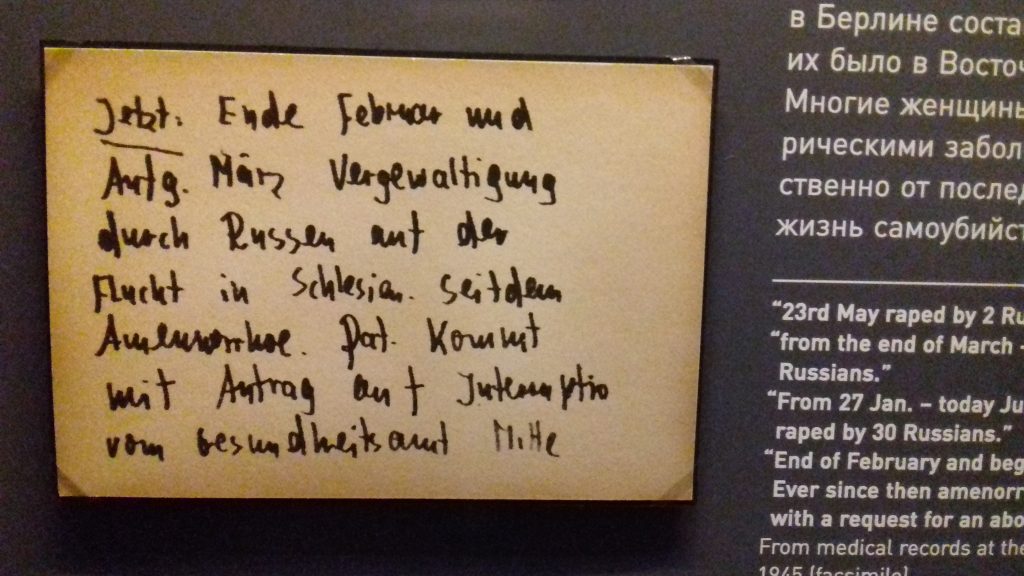 Jetzt: Ende Februar und
Anfg. März Vergewaltigung
durch Russen auf der
Flucht in Schlesien. Seitdem
Amenorrhoe. Pat. Kommt
mit Antrag auf Interruptio
vom Gesundheitsamt Mitte
в Берлине соста
их было в Восточ
Многие женщины
рическими забол
ственно от послед
жизнь самоубийст
“23rd May raped by 2 Ru
“from the end of March –
Russians.”
“From 27 Jan. – today Ju
raped by 30 Russians.”
“End of February and beg
Ever since then amenorr
with a request for an abo
From medical records at the
1945 (facsimile)